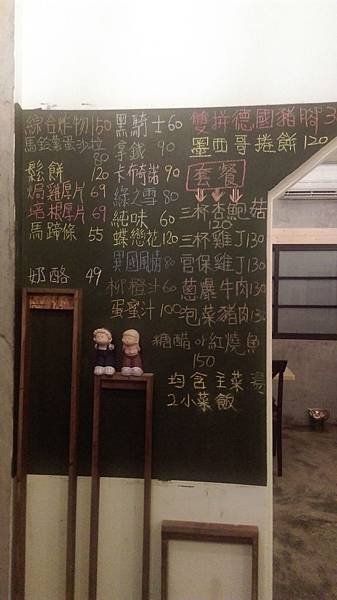 綜合炸物150
馬鈴薯蛋沙拉
80
鬆餅 120
焗雞厚片 69
培根厚片 69
馬蹄條 55
奶酪 49
黑騎士60
拿鐵 90
卡布奇諾 90
綠之雪 80
純味 60
蝶戀花 120
異國風情 80
柳橙汁 60
蛋蜜汁 100
雙拼德國豬腳3
墨西哥捲餅120
套餐
三杯杏鮑菇
120
三杯雞丁130
宮保雞丁130
蔥爆牛肉130
泡菜豬肉130
糖醋or紅燒魚
150
均含主菜
2小菜飯